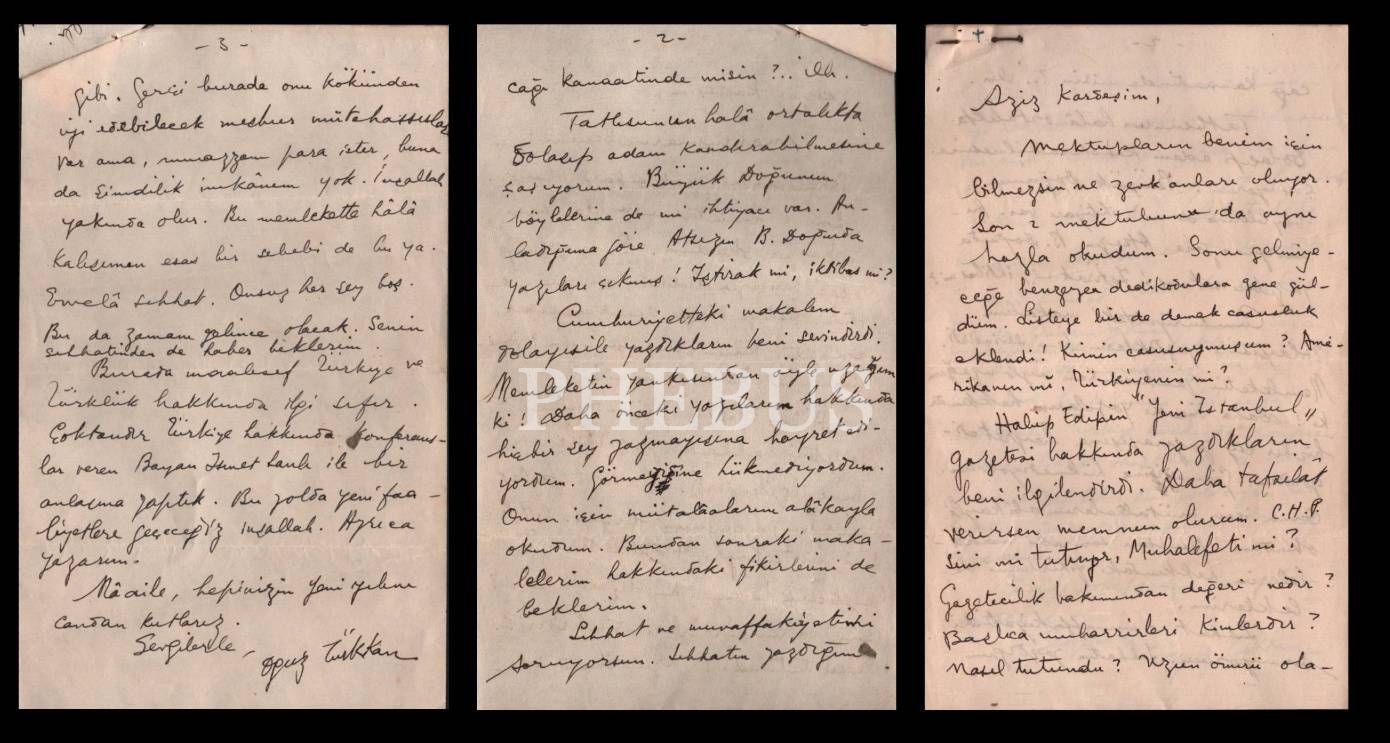 Aziz Kardeşim,
Mektupların benim için
bilmezsin ne zevk anları oluyor.
Son 2 mektubunu da aynı
hazla okudum. Sonu gelmiye-
ceğe benzeyen dedikodulara gene gül-
düm. Listeye bir de demek casusluk
eklendi! Kimin casusuymuşum? Ame-
rikanın mı, Türkiyenin mi?
Halip Edipin "Yeni Istanbul"
gazetesi hakkında yazdıkların
beni ilgilendirdi. Daha tafsilât
verirsen memnun olurum. C.H.P.
sini mi tutuyor, Muhalefeti mi?
Gazetecilik bakımından değeri nedir?
Başlıca muharrirleri kimlerdir?
Nasıl tutundu? Uzun ömürlü ola-
- 2 -
cağı kanaatinde misin?.. ilh.
hâlâ ortalıkta
dolaşıp adam kandırabilmesine
şaşıyorum. Büyük Doğunun
böylelerine de mi ihtiyacı var. An-
ladığıma göre Atsızın B. Doğuda
yazıları çıkmış! Iştirak mi, iktibas mı?
Cumhuriyetteki makalem
dolayısile yazdıkların beni sevindirdi.
Memleketin yankısından öyle uzağım
ki! Daha önceki yazılarım hakkında
hiçbir şey yazmayışına hayret edi-
yordum. Görmediğine hükmediyordum.
Onun için mütalâalarını alâkayla
okudum. Bundan sonraki maka-
lelerim hakkındaki fikirlerini de
beklerim.
Sıhhat ve muvaffakiyetimi
soruyorsun. Sıhhatim yazdığım
- 3 -
gibi. Gerçi burada onu kökünden
iyi edebilecek meşhur mütehassıslar
var ama, muazzam para ister, buna
da şimdilik imkânım yok. İnşallah
yakında olur. Bu memlekette hâlâ
kalışımın esas bir sebebi de bu ya.
Evvelâ sıhhat. Onsuz her şey boş.
Bu da zamanı gelince olacak. Senin
sıhhatinden de haber beklerim.
Burada maalesef Türkiye ve
Türklük hakkında ilgi sıfır.
Çoktandır Türkiye hakkında konferans-
lar veren Bayan Ismet Sanlı ile bir
anlaşma yaptık. Bu yolda yeni faa-
liyetlere geçeceğiz inşallah. Ayrıca
yazarım.
Mâaile, hepinizin yeni yılını
candan kutlarız.
Sevgilerle,
Oğuz Türkkan
PHEBUS